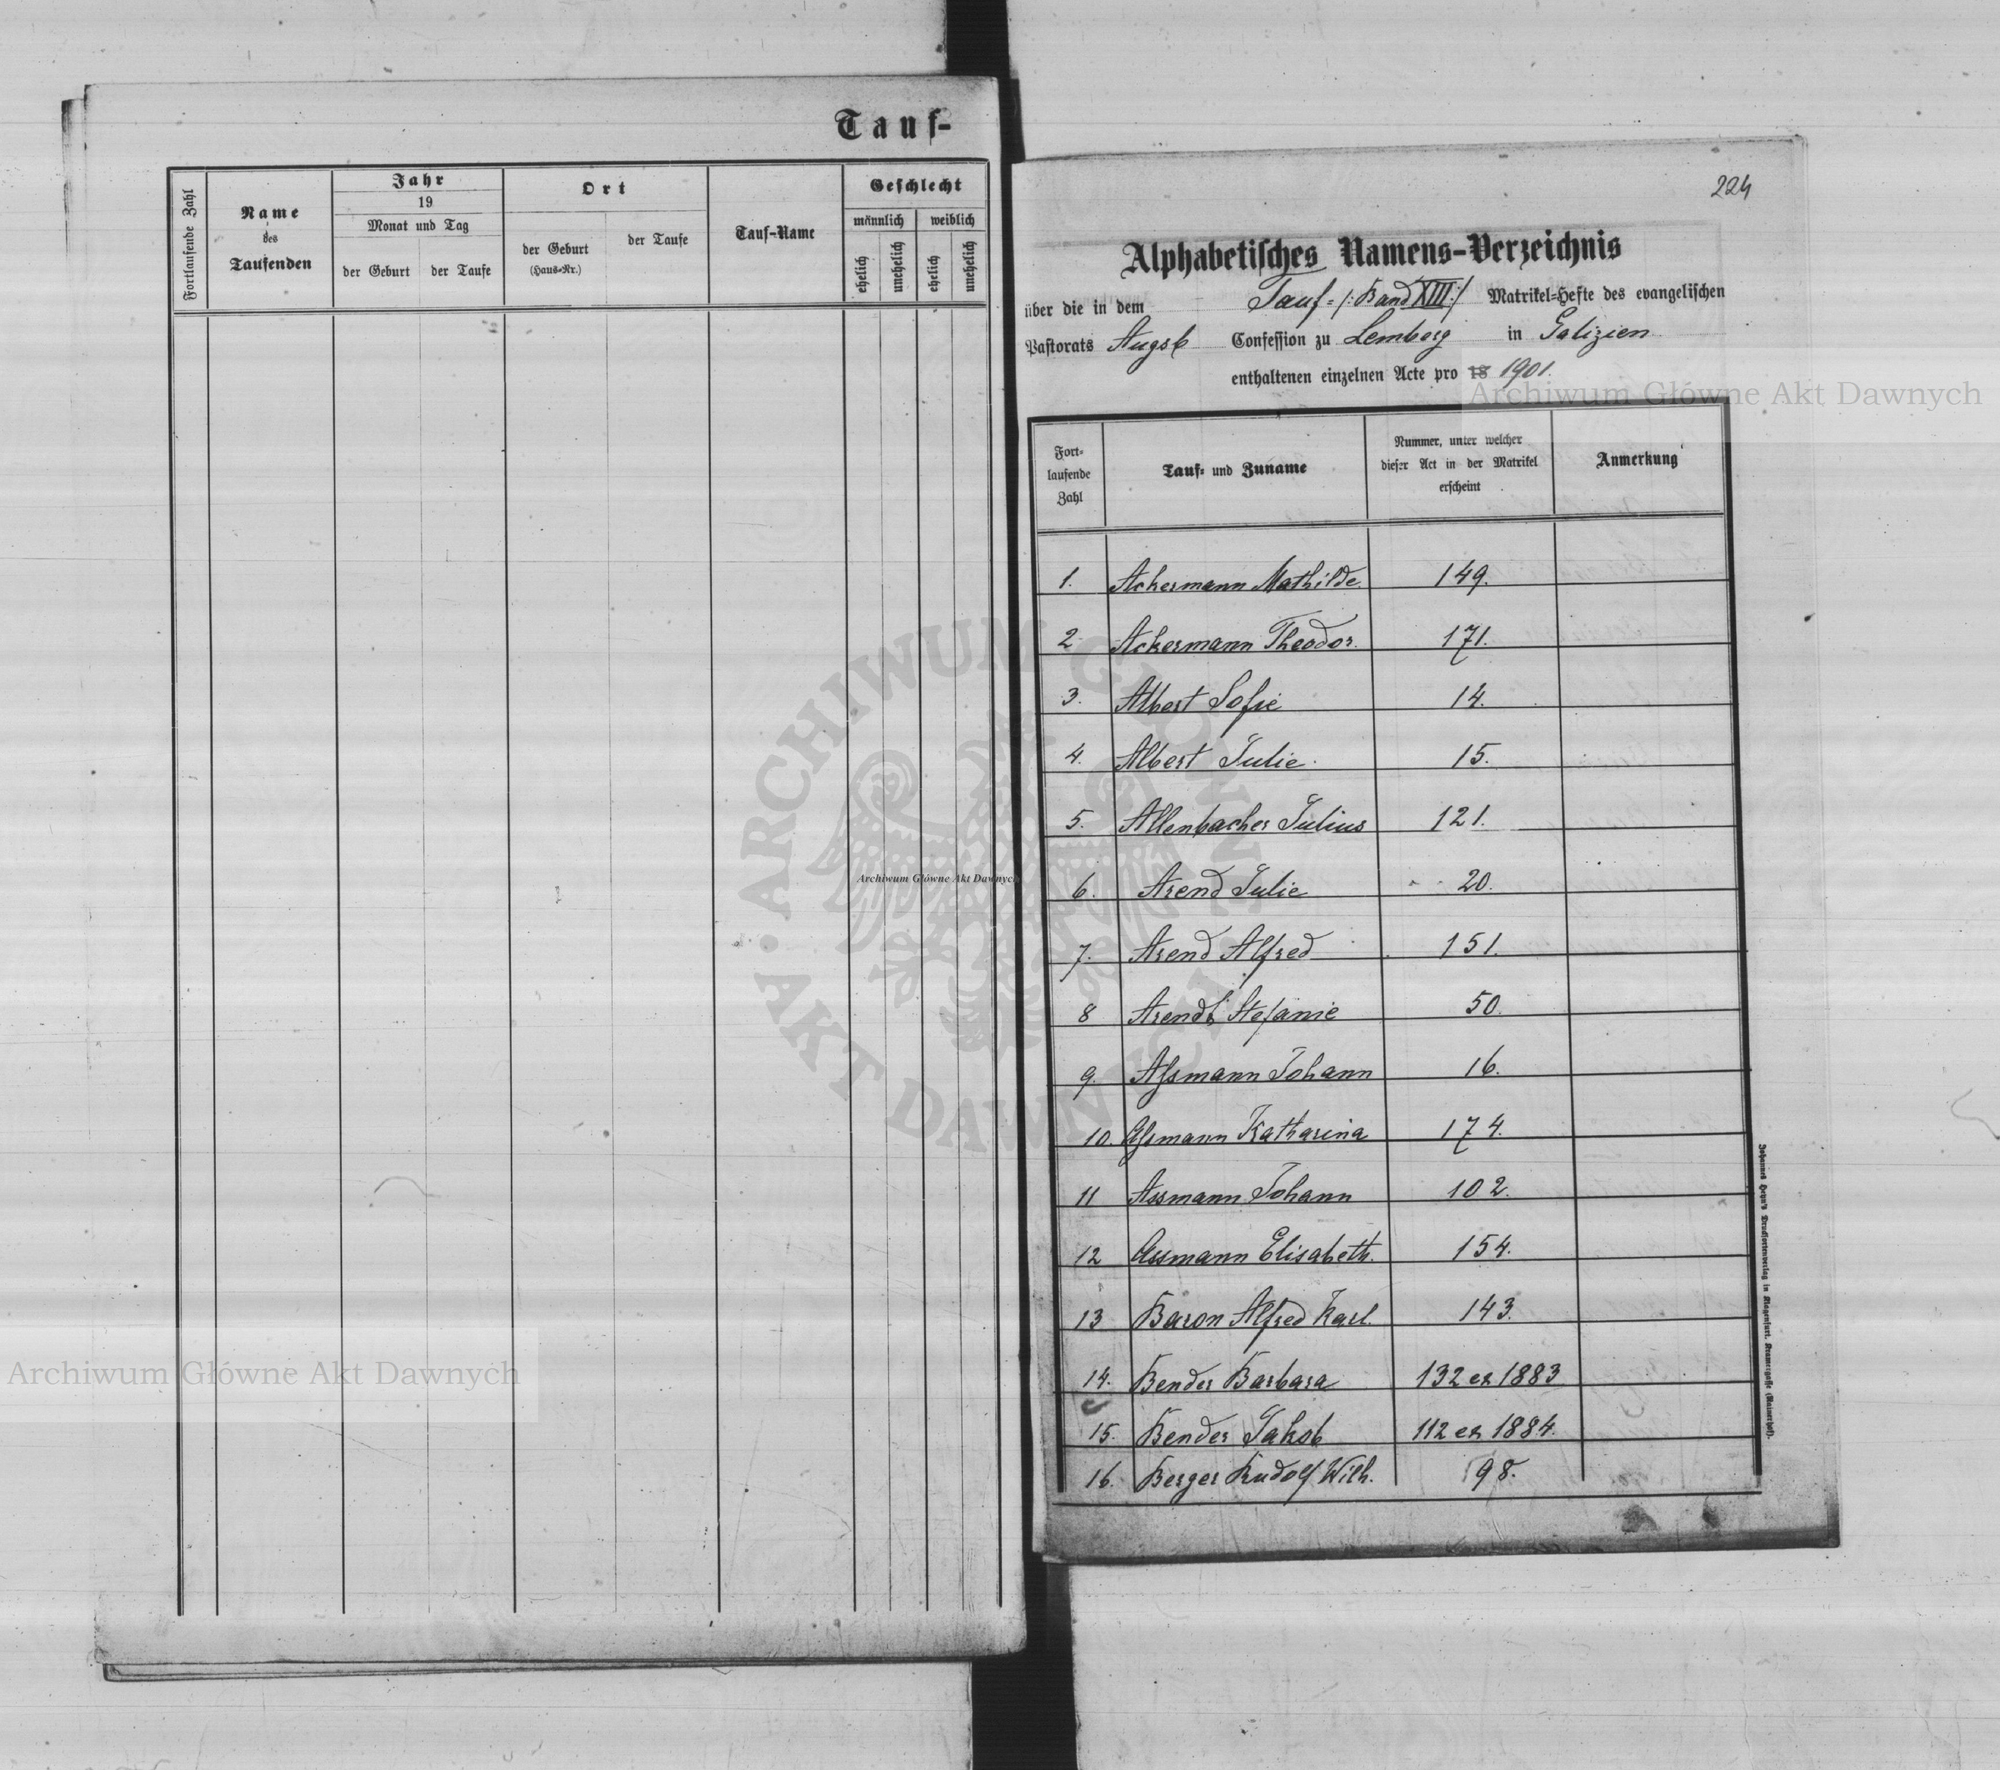 Tauf-
Fortlaufende Zahl
Name
des
Taufenden
Jahr
19
Monat und Tag
der Geburt
der Taufe
Ort
der Geburt
(Haus-Nr.)
der Taufe
Tauf-Name
Geschlecht
männlich
weiblich
ehelich
unehelich
ehelich
unehelich
224
Alphabetisches Namens-Verzeichnis
über die in dem Tauf- /: Band XIII :/ Matrikel-Hefte des evangelischen
Pastorats Augsb Confession zu Lemberg in Galizien
enthaltenen einzelnen Acte pro 18 1901.
Fort-
laufende
Zahl
Tauf- und Zuname
Nummer, unter welcher
dieser Act in der Matrikel
erscheint
Anmerkung
1. Ackermann Mathilde 149.
2 Ackermann Theodor. 171.
3. Albert Sofie 14.
4. Albert Julie. 15.
5. Allenbacher Julius 121.
6. Arend Julie 20.
7. Arend Alfred 151.
8 Arendt Stefanie 50.
9. Aſsmann Johann 16.
10. Aſsmann Katharina 174.
11 Assmann Johann 102.
12 Assmann Elisabeth. 154.
13 Baron Alfred Karl. 143.
14. Bender Barbara 132 ex 1883
15. Bender Jakob 112 ex 1884.
16. Berger Rudolf Wilh. 98.
Johannes Heyn's Drucksortenverlag in Klagenfurt, Kramergasse (Kaiserhof).
Archiwum Główne Akt Dawnych
Archiwum Główne Akt Dawnych
Archiwum Główne Akt Dawnych
ARCHIWUM GŁÓWNE · AKT DAWNYCH